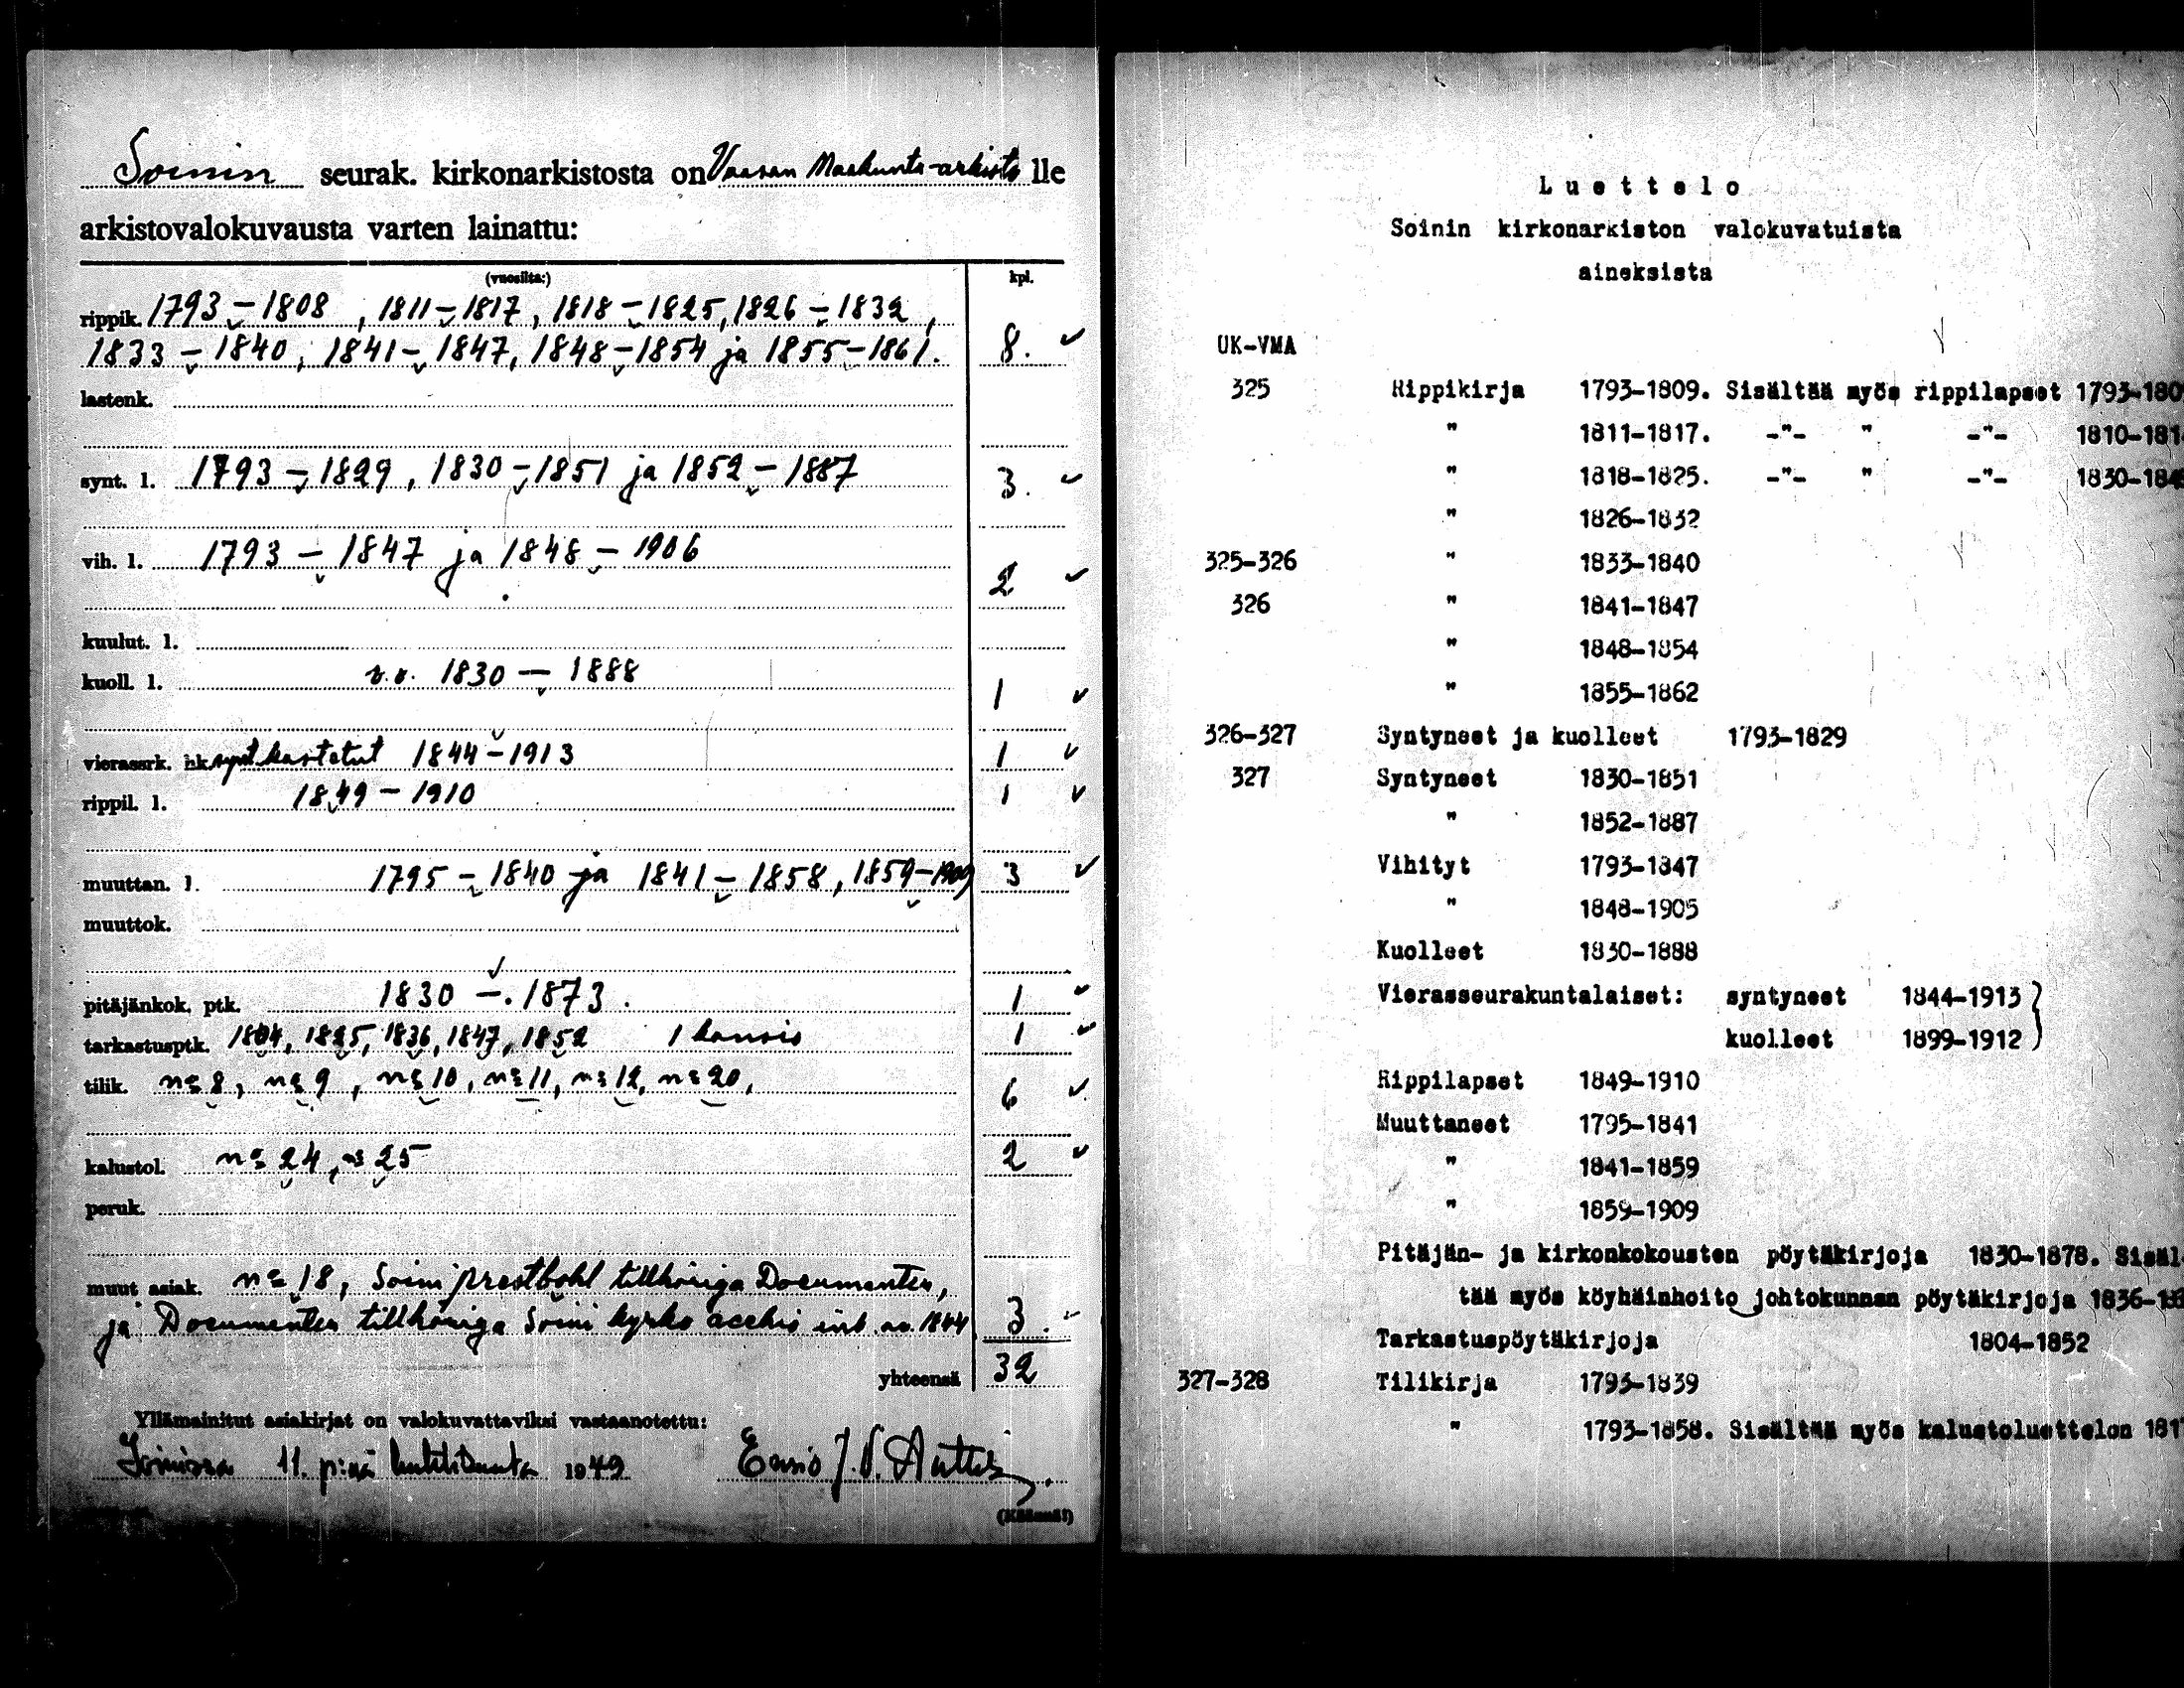 Soinin seurak. kirkonarkistosta on Vaasan Maakunta-arkisto lle
arkistovalokuvausta varten lainattu:
(vuosilta:) kpl.
rippik. 1793 – 1808, 1811 – 1817, 1818 – 1825, 1826 – 1832,
1833 – 1840, 1841 – 1847, 1848 – 1854 ja 1855 – 1861. 8.
lastenk.
synt. l. 1793 – 1829, 1830 – 1851 ja 1852 – 1887 3.
vih. l. 1793 – 1847 ja 1848 – 1906 2
kuulut. l.
kuoll. l. v.v. 1830 – 1888 1
vierassrk. hk. synt. kastetut 1844 – 1913 1
rippil. l. 1849 – 1910 1
muuttan. l. 1795 – 1840 ja 1841 – 1858, 1859 – 1909 3
muuttok.
pitäjänkok. ptk. 1830 – 1873. 1
tarkastusptk. 1804, 1825, 1836, 1847, 1852 1 kansio 1
tilik. n:o 8, n:o 9, n:o 10, n:o 11, n:o 12, n:o 20, 6
kalustol. n:o 24, n:o 25 2
peruk.
muut asiak. n:o 18, Soini prestbohl tillhöriga Documenter,
ja Documenter tillhöriga Soini kyrko 1844 3.
yhteensä 32
Yllämainitut asiakirjat on valokuvattaviksi vastaanotettu:
Soinissa 11. p:nä huhtikuuta 1949 Ensio J.
(Käännä!)
Luettelo
Soinin kirkonarkiston valokuvatuista
aineksista
UK-VMA
325 Rippikirja 1793-1809. Sisältää myös rippilapset 1793-180
" 1811-1817. -"- " -"- 1810-181
" 1818-1825. -"- " -"- 1830-184
" 1826-1832
325-326 " 1833-1840
326 " 1841-1847
" 1848-1854
" 1855-1862
326-327 Syntyneet ja kuolleet 1793-1829
327 Syntyneet 1830-1851
" 1852-1887
Vihityt 1793-1847
" 1848-1905
Kuolleet 1830-1888
Vierasseurakuntalaiset: syntyneet 1844-1913
kuolleet 1899-1912
Rippilapset 1849-1910
Muuttaneet 1795-1841
" 1841-1859
" 1859-1909
Pitäjän- ja kirkonkokousten pöytäkirjoja 1830-1878. Sisäl-
tää myös köyhäinhoito johtokunnan pöytäkirjoja 1836-18
Tarkastuspöytäkirjoja 1804-1852
327-328 Tilikirja 1793-1839
" 1793-1858. Sisältää myös kalustoluettelon 181